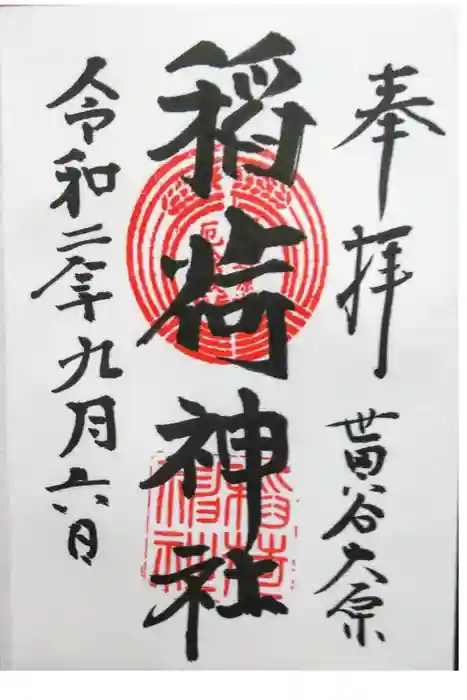 奉拝
世田谷大原
稲荷神社
稲荷神社
令和二年九月六日